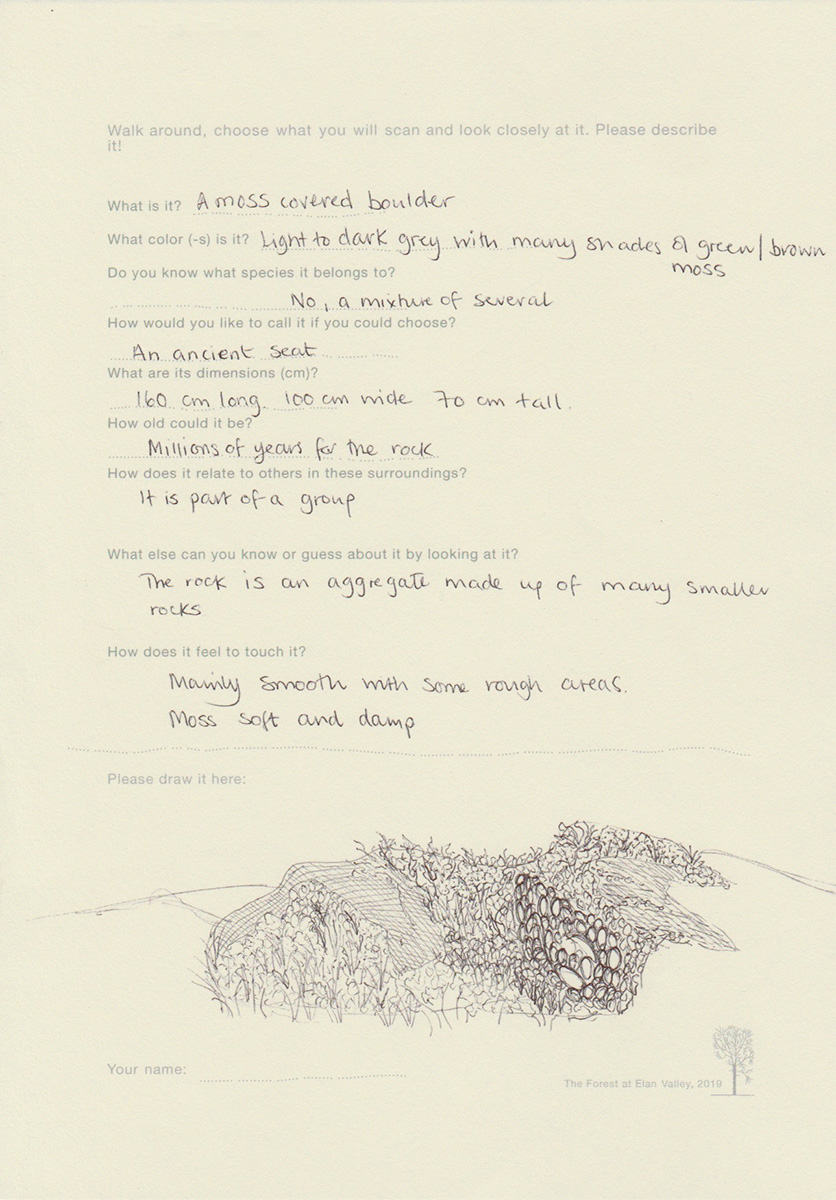 Walk around, choose what you will scan and look closely at it. Please describe
it!
What is it? A moss covered boulder
What color (-s) is it? Light to dark grey with many shades of green/brown
moss
Do you know what species it belongs to?
No, a mixture of several
How would you like to call it if you could choose?
An ancient seat
What are its dimensions (cm)?
160 cm long 100 cm wide 70 cm tall.
How old could it be?
Millions of years for the rock
How does it relate to others in these surroundings?
It is part of a group
What else can you know or guess about it by looking at it?
The rock is an aggregate made up of many smaller
rocks
How does it feel to touch it?
Mainly smooth with some rough areas.
Moss soft and damp
Please draw it here:
Your name:
The Forest at Elan Valley, 2019